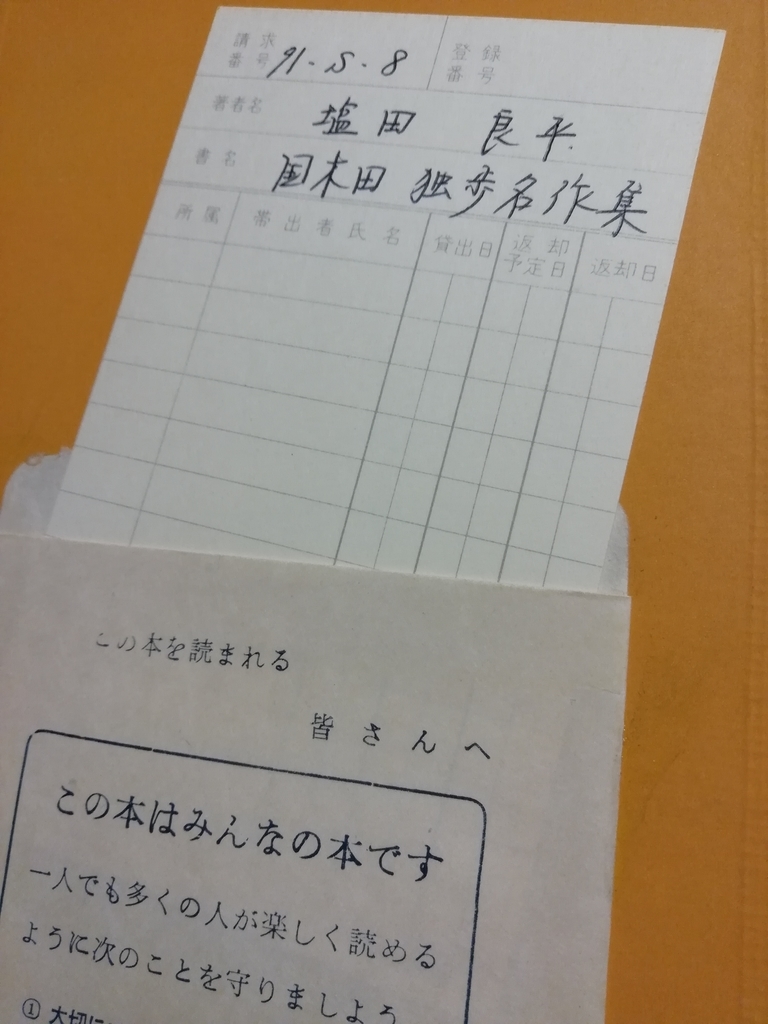 請求番号 91-S-8 登録番号
著者名 塩田 良平
書名 国木田 独歩名作集
所属 帯出者氏名 貸出日 返却予定日 返却日
この本を読まれる
皆さんへ
この本はみんなの本です
一人でも多くの人が楽しく読める
ように次のことを守りましよう
① 大切に